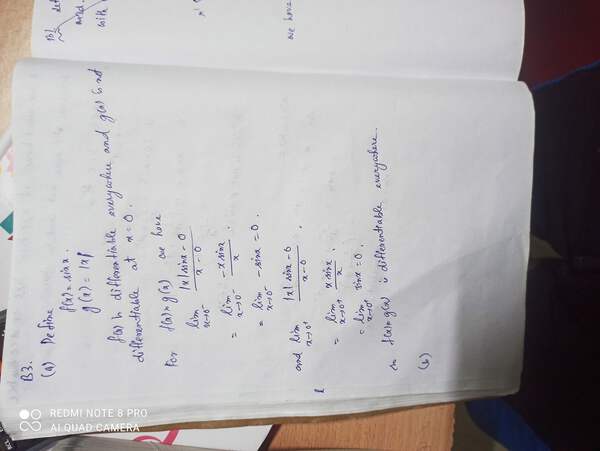 B3.
(a) Define
f(x) = sin x.
g(x) = |x|
f(x) is differentiable everywhere and g(x) is not
differentiable at x = 0.
For f(x)g(x) we have
lim x→0⁻ |x| sin x - 0 / x - 0
= lim x→0⁻ -x sin x / x.
= lim x→0⁻ - sin x = 0.
and lim x→0⁺ |x| sin x - 0 / x - 0.
= lim x→0⁺ x sin x / x.
= lim x→0⁺ sin x = 0.
so f(x)g(x) is differentiable everywhere.
(b)
B1/
with
we have
REDMI NOTE 8 PRO
AI QUAD CAMERA